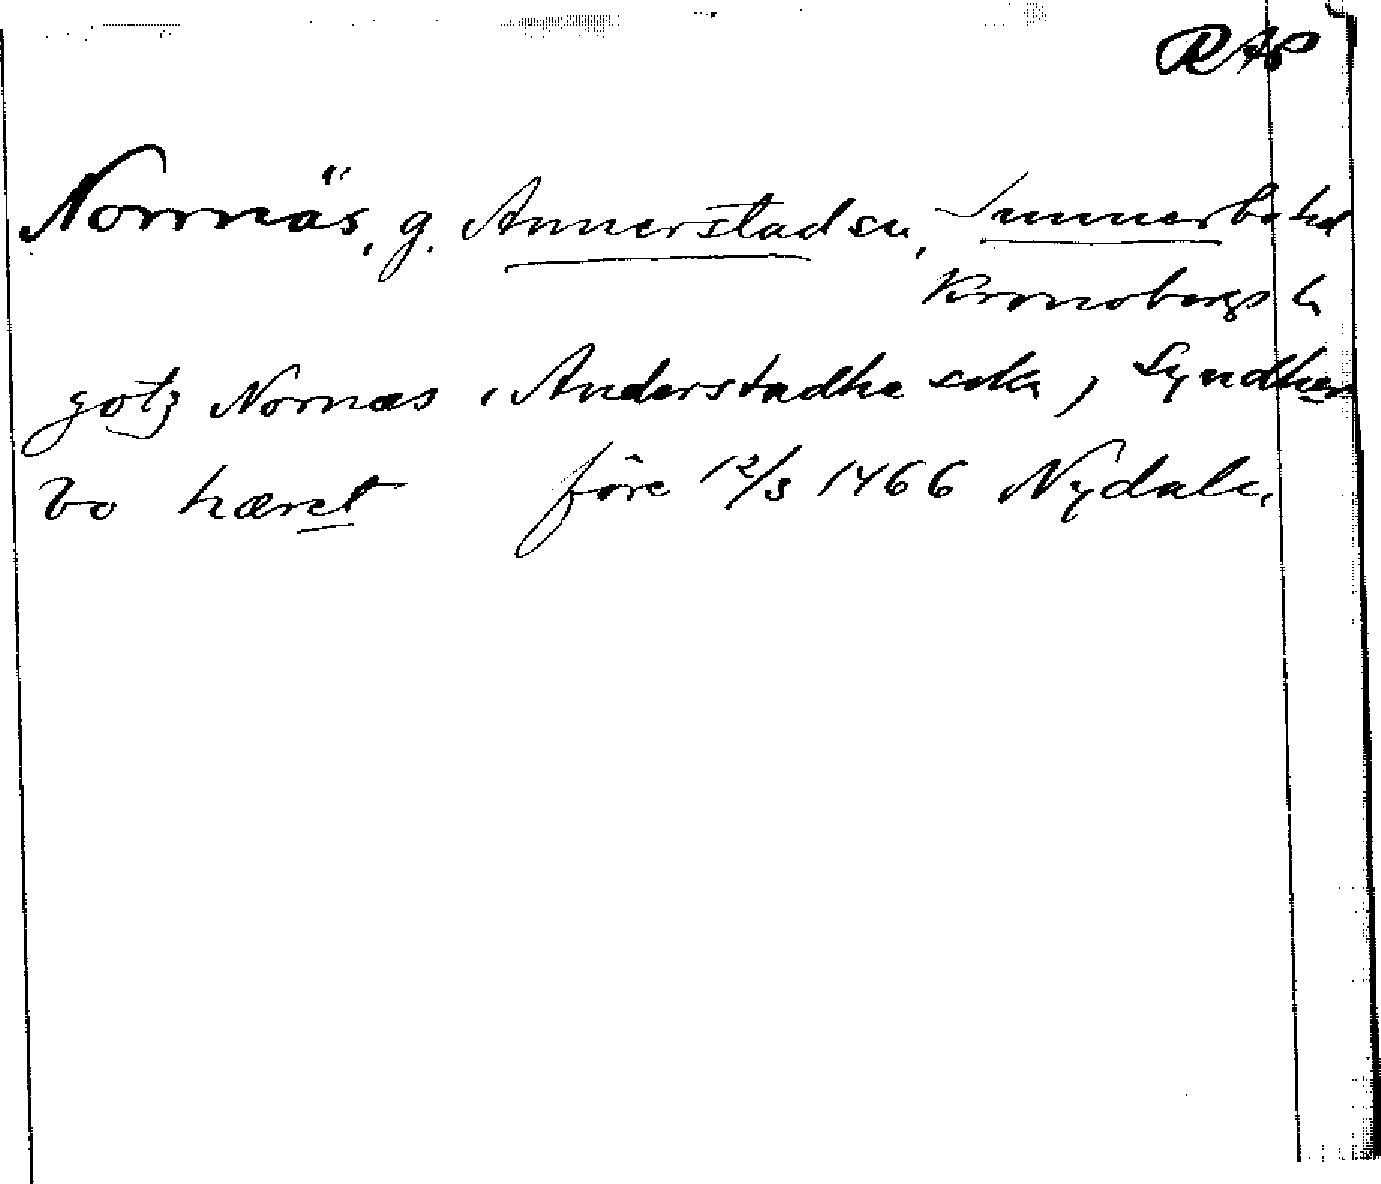 RAP
Norrnäs, g. Annerstad sn, Sunnerbo hd
Kronobergs l.
gotz Nornæs i Anderstadhe sokn, Syndher
bo hæret före 12/3 1466 Nydala.